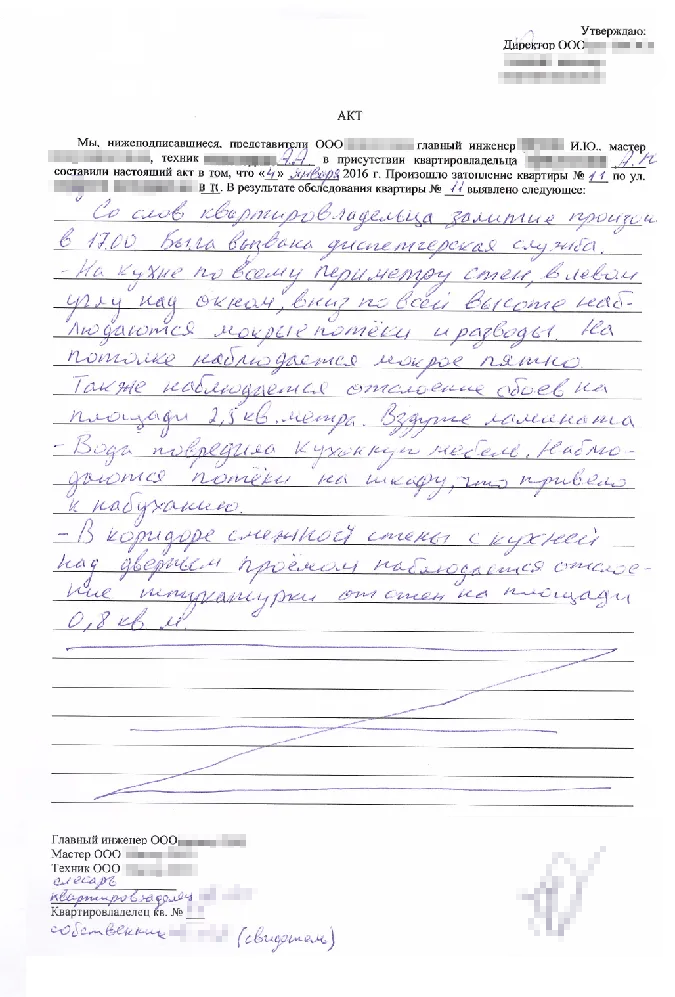 Утверждаю:
Директор ООО
АКТ
Мы, нижеподписавшиеся, представители ООО главный инженер И.Ю., мастер
, техник А.А. в присутствии квартировладельца А.Н
составили настоящий акт в том, что «4» января 2016 г. Произошло затопление квартиры № 11 по ул.
в К. В результате обследования квартиры № 11 выявлено следующее:
Со слов квартировладельца залитие произош
в 17.00 Была вызвана диспетчерская служба.
- На кухне по всему периметру стен, в левом
углу над окном, вниз по всей высоте наб-
людаются мокрые потёки и разводы. На
потолке наблюдается мокрое пятно.
Также наблюдается отслоение обоев на
площади 2,5 кв. метра. Вздутие ламината
- Вода повредила кухонную мебель. Наблю-
даются потёки на шкафу, что привело
к набуханию.
- В коридоре смежной стены с кухней
над дверным проёмом наблюдается отслое-
ние штукатурки от стен на площади
0,8 кв м.
Главный инженер ООО
Мастер ООО
Техник ООО
слесарь
квартировладелец
Квартировладелец кв. №
собственник (свидетель)